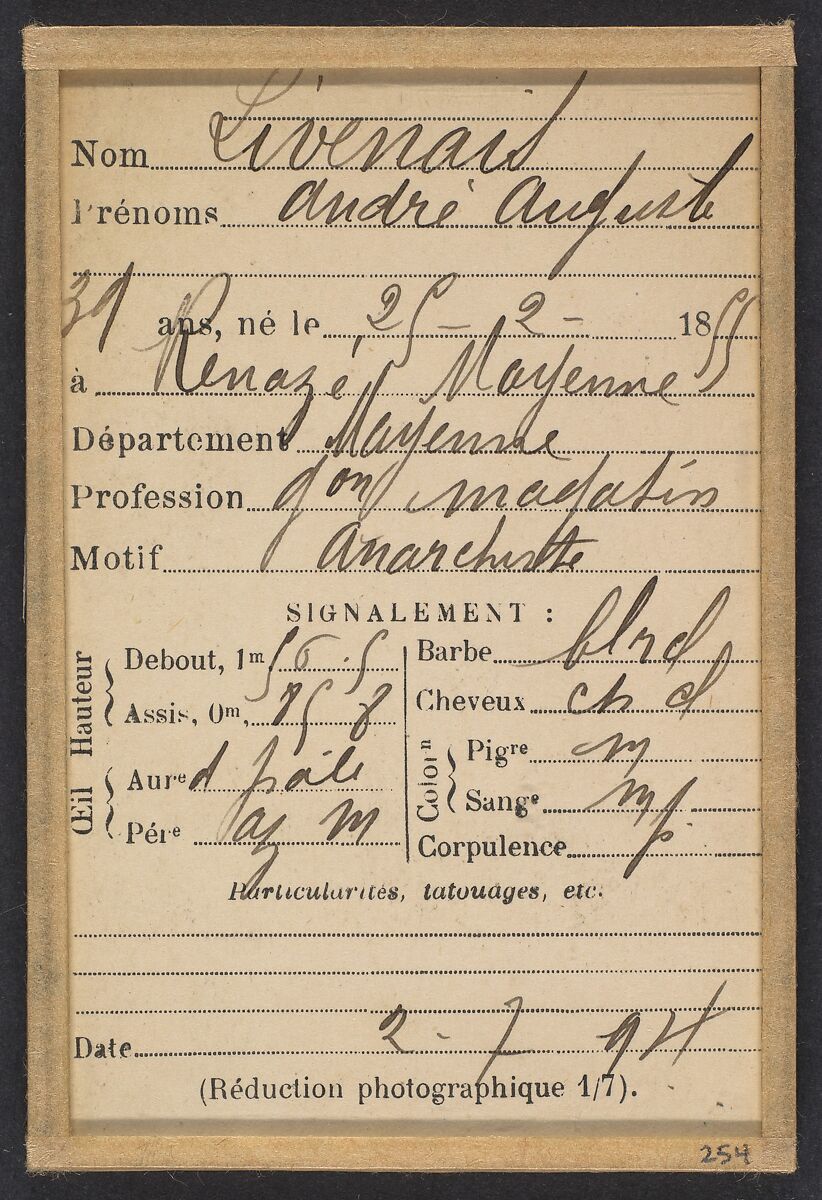 Nom Livenais
Prénoms André Auguste
39 ans, né le 25 - 2 - 1855
à Renazé, Mayenne
Département Mayenne
Profession gon magasin
Motif Anarchiste
SIGNALEMENT :
Hauteur
Debout, 1m 56.5
Assis, 0m,
Œil
Aure d pâle
Pére az m
Barbe
Cheveux ch d
Colorn
Pigre m
Sange m
Corpulence
Particularités, tatouages, etc.
Date 2 - 7 94
(Réduction photographique 1/7).
254